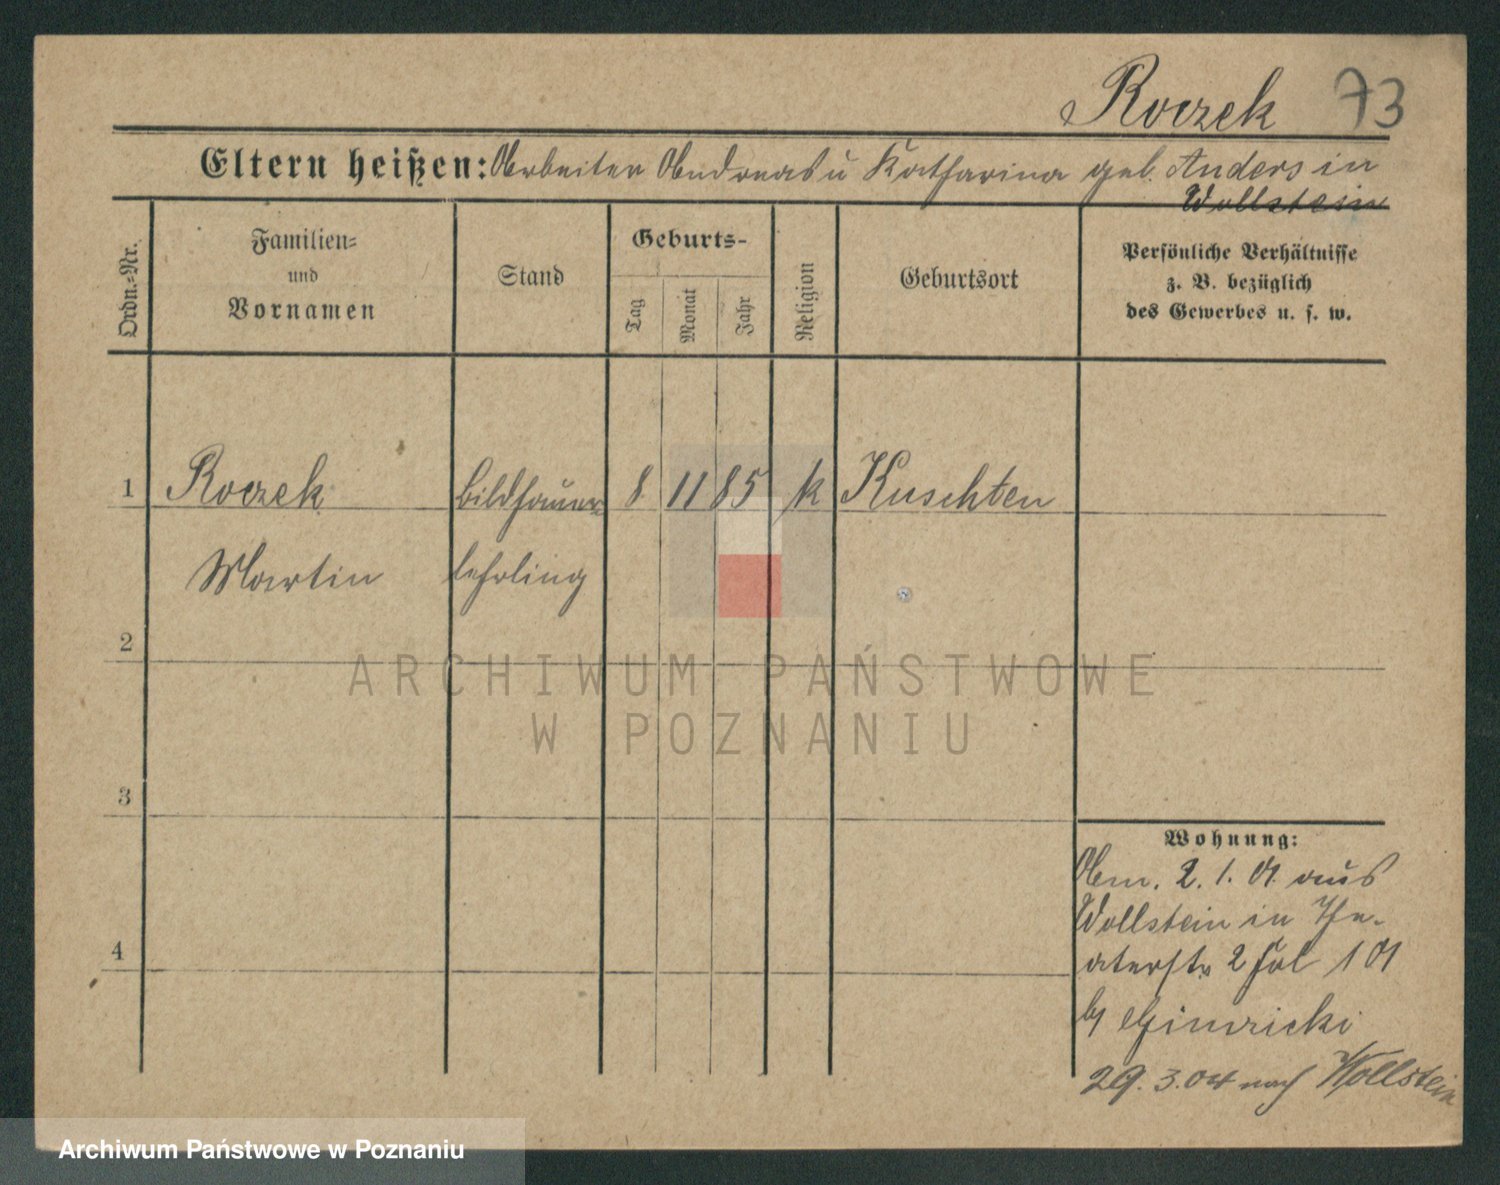 Roczek 73
Eltern heißen: Arbeiter Andreas u Katharina geb. Anders in
Wollstein
Ordn.-Nr.
Familien-
und
Vornamen
Stand
Geburts-
Tag
Monat
Jahr
Religion
Geburtsort
Persönliche Verhältnisse
z. B. bezüglich
des Gewerbes u. s. w.
1 Roczek Bildhauer- 8 11 85 k Kuschten
Martin lehrling
2
3
4
Wohnung:
Anm. 2.1.01. aus
Wollstein in The-
aterstr 2 101
by
29.3.04 nach Wollstein
ARCHIWUM PAŃSTWOWE
W POZNANIU
Archiwum Państwowe w Poznaniu